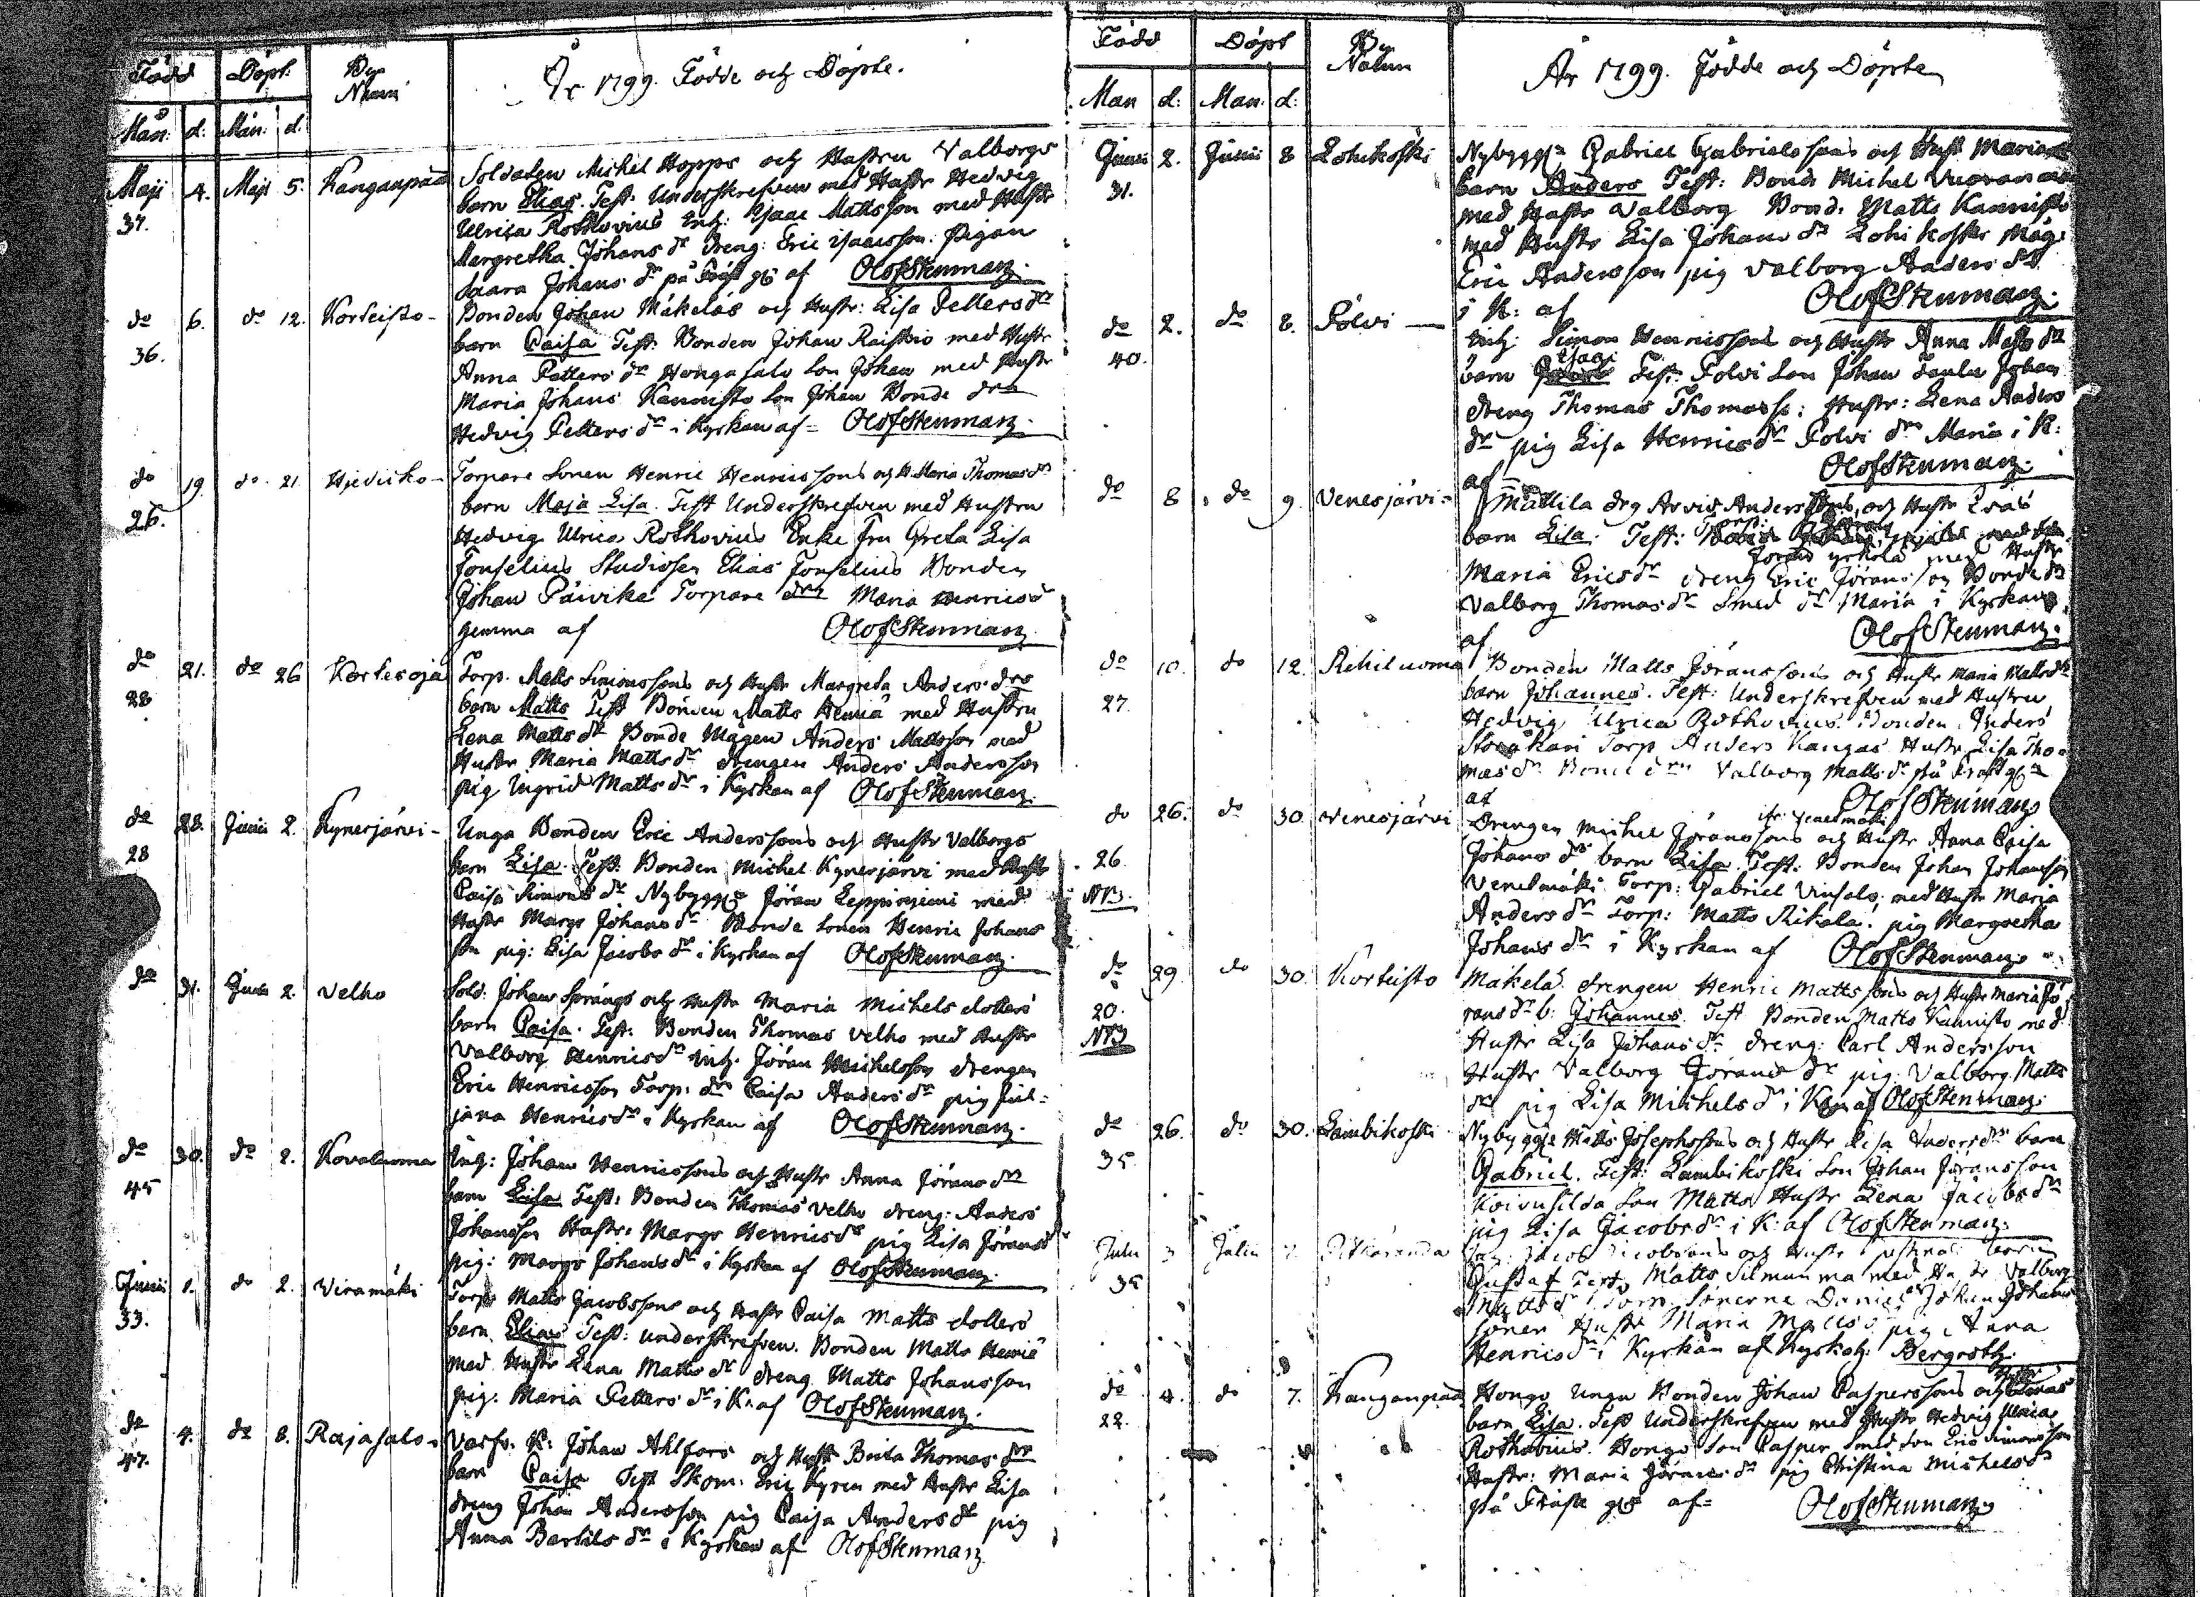 Född Döpt. By Namn År 1799. Födde och Döpte.
Mån: d: Mån: d:
Maji 4. Maji 5. Kanganpää Soldaten Michel Hopps och Hustru Valborgs
37. barn Elias. Test. Underskrefven med Hustr Hedvig
Ulrica Rothovius Enk: Isaac Mattsson med Hustr
Margretha Johans dr dreng: Eric Isaacsson. Pigan
Saara Johans dr på af OlofStenman.
do 6. do 12. Korteisto - Bonden Johan Mäkeläs och Hustr: Lisa Petters dr
36. barn Caisa Test: Bonden Johan Raiskio med Hustr
Anna Petters dr Hongasalo Son Johan med Hustr
Maria Johans Kannisto Son Johan Bonde dra
Hedvig Petters dr i Kyrkan af = OlofStenman.
do 19 do 21. Torpare Sonen Henric Henricssons och H. Maria Thomas dr
26. barn Maja Lisa. Test Underskrefven med Hustru
Hedvig Ulrica Rothovius Enke Fru Greta Lisa
Fonselius Studiosen Elias Fonselius Bonden
Johan Päivike Torpare dra Maria Henrics dr
hemma af OlofStenman
do 21. do 26 Kortesoja Torp. Matts Simonssons och Hustr Margreta Anders dra
28 barn Matts Test Bonden Matts Heniä med Hustru
Lena Matts dr Bonde Mågen Anders Mattsson med
Hustr Maria Matts dr drengen Anders Andersson
pig Ingrid Matts dr i Kyrkan af OlofStenman.
do 28. Junii 2. Kynesjärvi - Unga Bonden Eric Anderssons och Hustr Valborgs
28 barn Lisa. Test: Bonden Michel Kynesjärvi med Hustr
Caisa Simons dr Nybygg Jöran Leppiniemi med
Hustr Margr Johans dr Bonde Sonen Henric Johans
son pig: Lisa Jacobs dr i Kyrkan af OlofStenman.
do 31. Junii 2. Velho Sold: Johan Språngs och Hustr Maria Michels dotters
barn Caisa. Test: Bonden Thomas Velho med Hustr
Valborg Henrics dr Inh. Jöran Michelsson drengen
Eric Henricsson Torp: dra Caisa Anders dr pig Jul=
jana Henrics dr i Kyrkan af OlofStenman.
do 30. do 2. Kovaluoma Inh: Johan Henricssons och Hustr Anna Jörans dr
45 barn Lisa Test: Bonden Thomas Velho dreng: Anders
Johansson Hustr: Margr Henrics dr pig Lisa Jörans dr
pig: Margr Johans dr i Kyrkan af OlofStenman.
Junii 1. do 2. Viramäki Torp Matts Jacobssons och Hustr Caisa Matts dotters
33. barn Elias Test: underskrefven. Bonden Matts Heniä
med Hustr Lena Matts dr dreng Matts Johansson
pig. Maria Petters dr i K. af OlofStenman.
do 4. do 8. Rajasalo - Varfv. K: Johan Ahlfors och Hustr Brita Thomas dr
47. barn Caisa Test Skom: Eric Kyren med Hustr Lisa
dreng Johan Andersson pig Caisa Anders dr pig
Anna Bertils dr i Kyrkan af OlofStenman
Född Döpt By Namn År 1799. Födde och Döpte
Mån d: Mån: d:
Junii 2. Junii 8 Lohikoski Nybygg Gabriel Gabrielssons och Hustr Marias
31. barn Anders Test: Bond. Michel Vuorenmaa
med Hustr Valborg Bond. Matts Kannisto
med Hustr Lisa Johans dr Lohikoski Måg
Eric Andersson pig Valborg Anders dr
i K: af OlofStenman.
do 2. do 8. Polvi — Inh: Simon Henricssons och Hustr Anna Matts dr
40. barn Isaac Test: Polvi Son Johan
dreng Thomas Thomass: Hustr: Lena Anders
dr pig Lisa Henrics dr Polvi dra Maria i K:
af - OlofStenman.
do 8 do 9 Venesjärvi - Mattila drg Arvid Anderssons och Hustr Evas
barn Lisa. Test: med
Jöran Yrkola med Hustr
Maria Erics dr dreng Eric Jöransson Bonde dr
Valborg Thomas dr Smed dr Maria i Kyrkan
af OlofStenman.
do 10. do 12. Rehiluoma Bonden Matts Jöranssons och Hustr Maria Matts dr
27. barn Johannes. Test: Underskrefven med Hustru
Hedvig Ulrica Rothovius. Bonden Anders
Torp Anders Kangas Hustr Lisa Tho=
mas dr Bonde dra Valborg Matts dr på
af OlofStenman
do 26. do 30 Venesjärvi Drengen Michel Jöranssons och Hustr Anna Caisa
26. Johans dr barn Lisa Test: Bonden Johan Johansson
NB. Venesmäki Torp: Gabriel med Hustr Maria
Anders dr Torp: Matts Rikala. pig Margretha
Johans dr i Kyrkan af OlofStenman.
do 29. do 30. Korteisto Mäkelä drengen Henric Mattssons och Hustr Maria Jö
20. rans dr b: Johannes. Test Bonden Matts Kannisto med
NB Hustr Lisa Johans dr dreng: Carl Andersson
Hustr Valborg Jörans dr pig. Valborg Matts
dr pig Lisa Michels dr i K af OlofStenman.
do 26. do 30. Lambikoski Nybygg Matts Josephssons och Hustr Lisa Anders dr barn
35. Gabriel. Test: Lambikoski Son Johan Jöransson
Koivusilda Son Matts Hustr Lena Jacobs dr
pig Lisa Jacobs dr i K: af OlofStenman.
Julii 3 Julii 7. Pitkäranda Jacob Jacobssons och Hustr Justinas barn
35 Gustaf Test: Matts Silmunma med Hustr Valborg
Matts dr Sönerne Daniel Johan Johans
söner Hustr Maria Matts dr pig Anna
Henrics dr i Kyrkan af Kyrkoh: Bergroth.
do 4. do 7. Kanganpää Hongo Unga Bonden Johan Caspersons och Hustr
22. barn Lisa. Test Underskrefven med Hustr Hedvig Ulrica
Rothovius. Hongo Son Casper Smed Son Eric Simonsson
Hustr: Maria Jörans dr pig Christina Michels dr
på af = OlofStenman